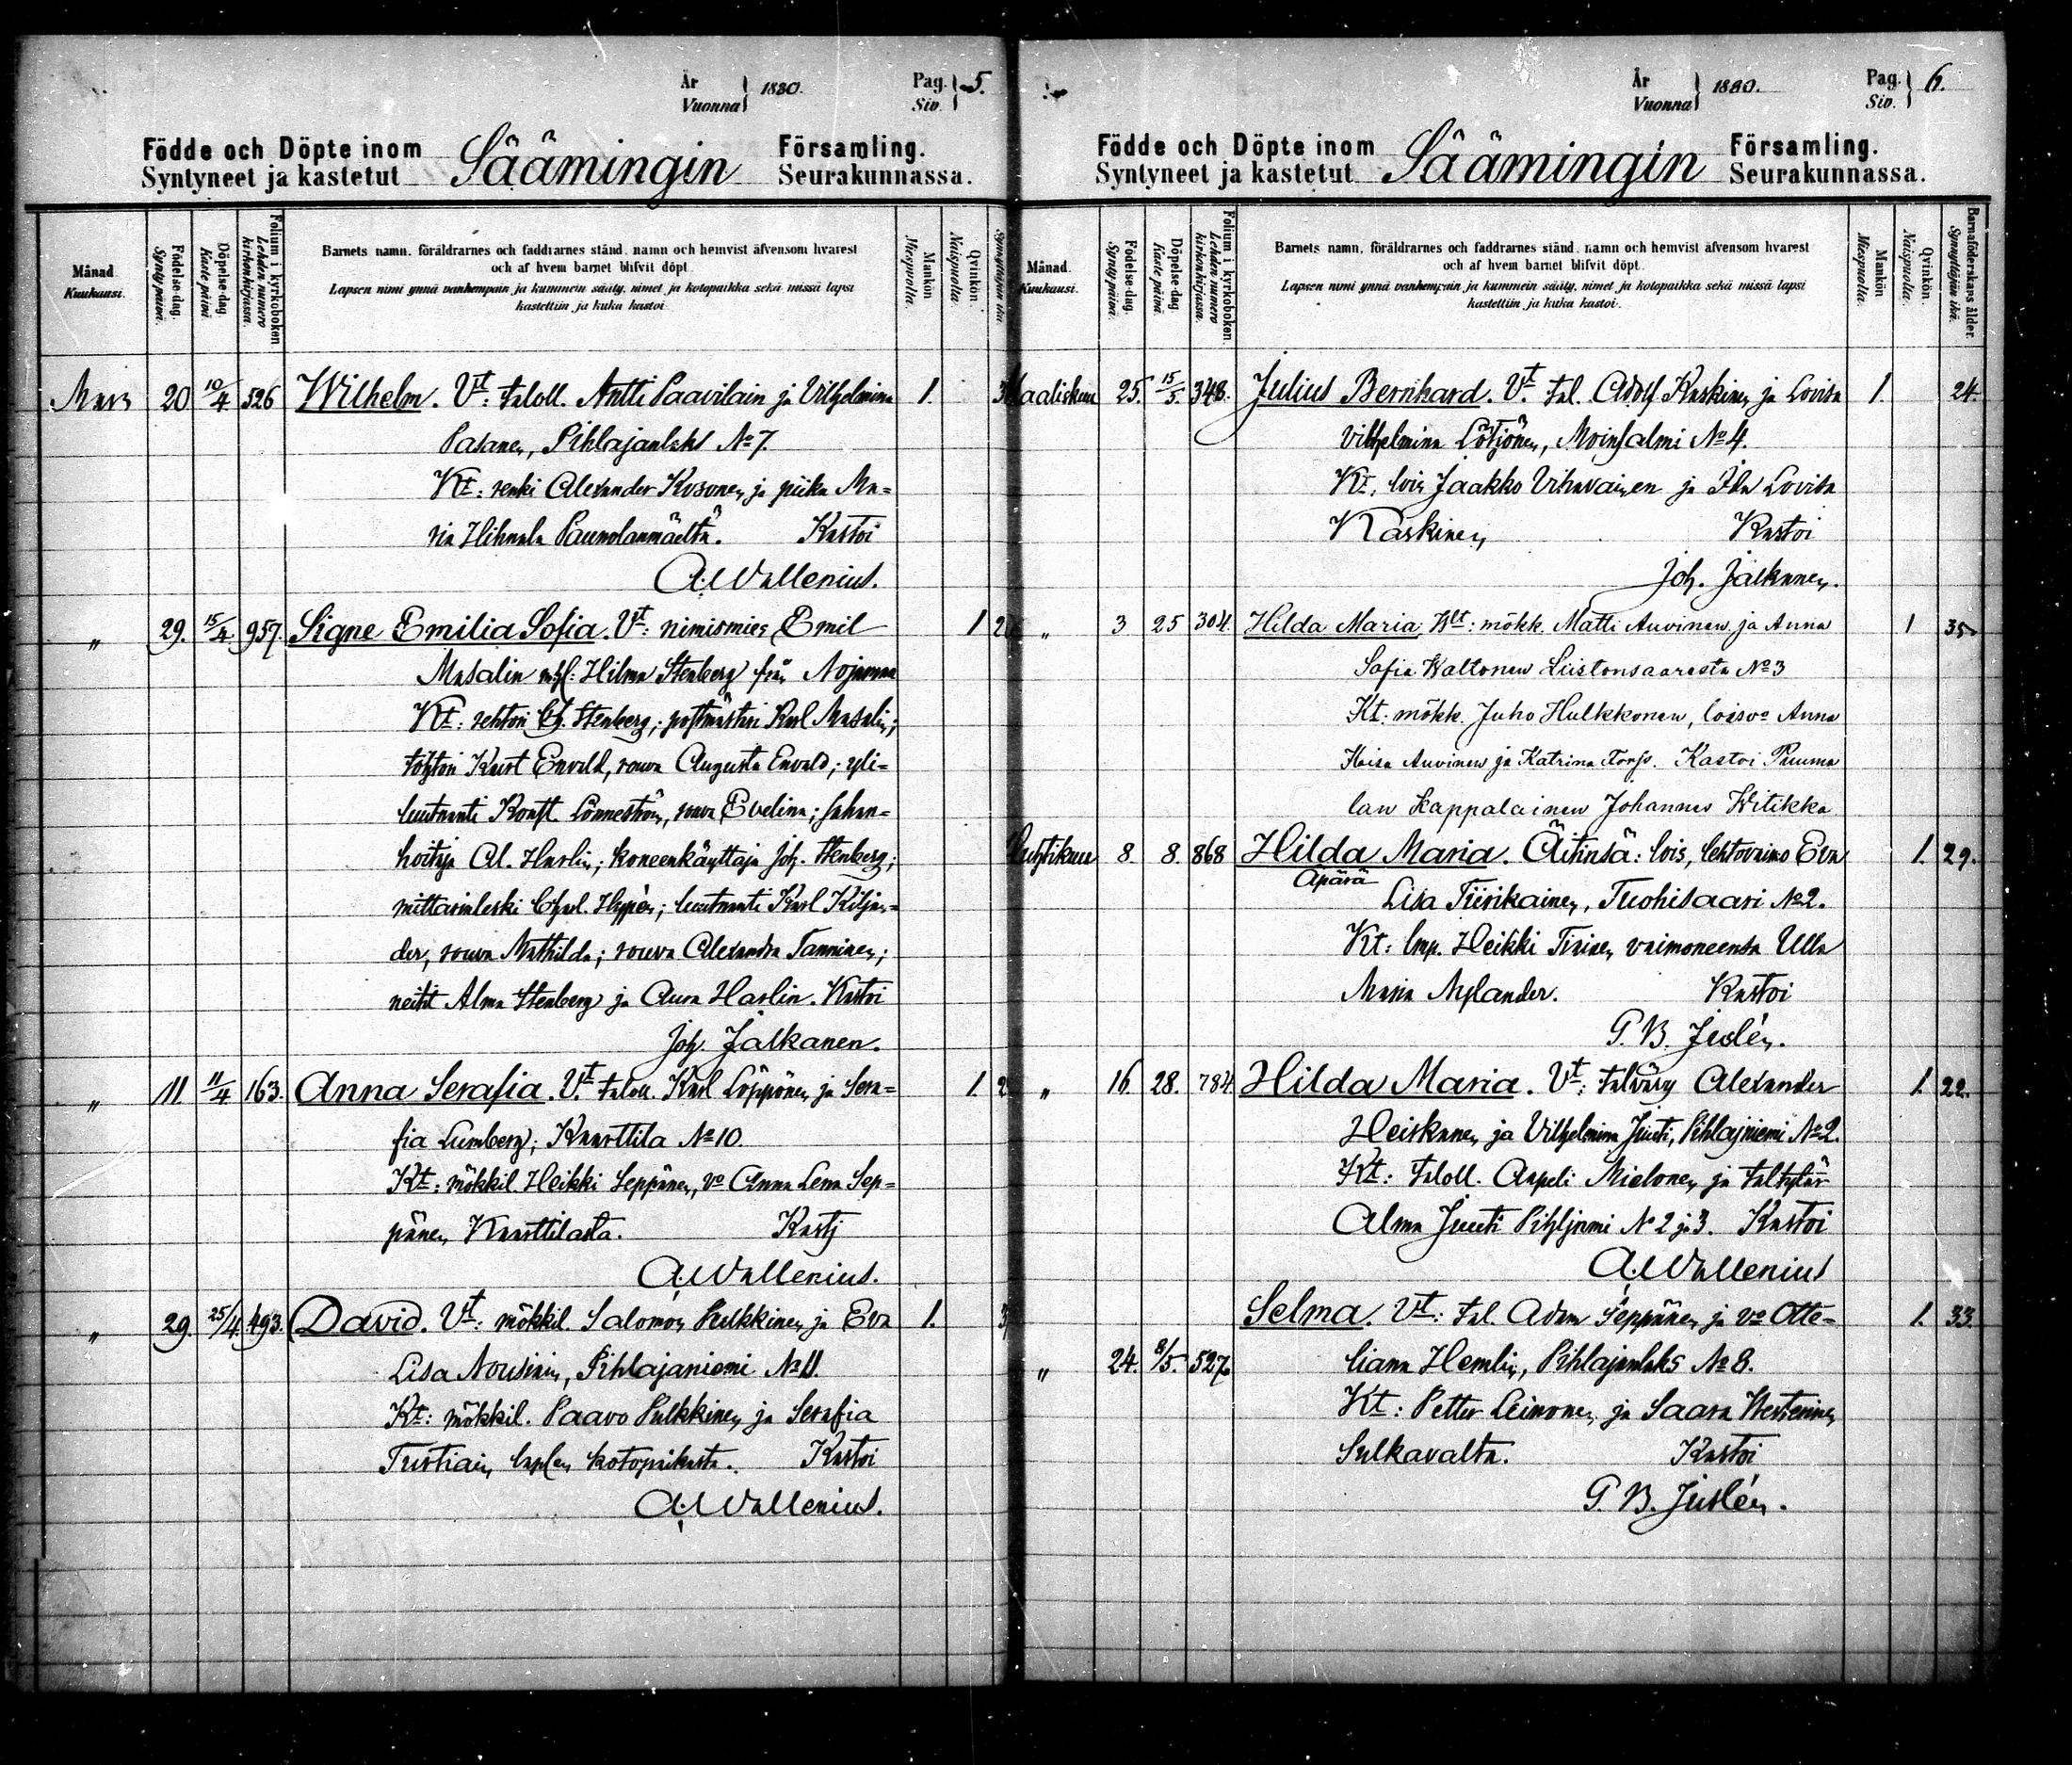 År
Vuonna } 1880.
Pag.
Siv. } 5.
Födde och Döpte inom
Syntyneet ja kastetut
Säämingin
Församling.
Seurakunnassa.
Månad.
Kuukausi.
Födelse-dag.
Synty päivä.
Döpelse-dag
Kaste päivä
Folium i kyrkoboken
Lehden numero kirkonkirjassa.
Barnets namn, föräldrarnes och faddrarnes stånd, namn och hemvist äfvensom hvarest
och af hvem barnet blifvit döpt.
Lapsen nimi ynnä vanhempain ja kummein sääty, nimet ja kotopaikka sekä missä lapsi
kastettiin ja kuka kastoi
Mankön
Miespuolia.
Qvinkön.
Naispuolia.
Synnyttäjän ikä
Mars 20 10/4 526 Wilhelm. Vt: taloll. Antti Paavilain ja Vilhelmina 1. 3
Pasanen, Pihlajanlaks No 7.
Kt: renki Alexander Kosonen ja piika Ma=
ria Hihnala Paunolanmäeltä. Kastoi
A. Wallenius.
„ 29. 15/4 957. Signe Emilia Sofia. Vt: nimismies Emil 1 2
Masalin Hilma Stenberg från Nojanmaa
Kt: rehtori Stenberg; postmästari Karl Masalin;
tohtori Enwald, rouva Augusta Enwald; yli=
luutnantti Konst. Lönneström, rouva Evelina; sahan=
hoitaja Al. Harlin; koneenkäyttäjä Joh. Stenberg;
mittarinleski Charl. Hypén; luutnantti Karl Kiljan=
der, rouva Mathilda; rouva Alexandra Tanninen;
neitit Alma Stenberg ja Aura Harlin. Kastoi
Joh. Jalkanen.
„ 11 11/4 163. Anna Serafia. Vt: taloll. Karl Löppönen ja Sera= 1. 2
fia Lumberg, Kaarttila No 10.
Kt: mökkil. Heikki Seppänen, vo Anna Lena Sep=
pänen, Kaarttilasta. Kastj
A. Wallenius.
„ 29. 25/4 493. David. Vt: mökkil. Salomon Pulkkinen ja Eva 1. 3
Lisa Nousiain, Pihlajaniemi No 11.
Kt: mökkil. Paavo Pulkkinen ja Serafia
Tustiain, lapsen kotopaikasta. Kastoi
A. Wallenius.
År
Vuonna } 1880.
Pag.
Siv. } 6.
Födde och Döpte inom
Syntyneet ja kastetut
Säämingin
Församling.
Seurakunnassa.
Månad.
Kuukausi.
Födelse-dag.
Synty päivä.
Döpelse-dag
Kaste päivä.
Folium i kyrkoboken.
Lehden numero kirkonkirjassa.
Barnets namn, föräldrarnes och faddrarnes stånd, namn och hemvist äfvensom hvarest
och af hvem barnet blifvit döpt.
Lapsen nimi ynnä vanhempain ja kummein sääty, nimet ja kotopaikka sekä missä lapsi
kastettiin ja kuka kastoi.
Mankön
Miespuolia.
Qvinkön.
Naispuolia.
Barnaföderskans ålder.
Synnyttäjän ikä.
Maaliskuu 25. 15/5. 348. Julius Bernhard. Vt. tal. Adolf Kaskinen ja Lovisa 1. 24.
Vilhelmina Lötjönen, Moinsalmi No 4.
Kt: lois Jaakko Vihavainen ja Ida Lovisa
Kaskinen Kastoi
Joh. Jalkanen.
„ 3 25 304. Hilda Maria, Vt: mökk. Matti Auvinen ja Anna 1 35
Sofia Waltonen Liistonsaaresta No 3
Kt: mökk. Juho Hulkkonen, lois vo Anna
Kaisa Auvinen ja Katrina Torss. Kastoi Puuma
lan Kappalainen Johannes Witikka
Huhtikuu 8. 8. 868 Hilda Maria. Äitinsä: lois, lehtovaimo Eva 1. 29.
Äpärä
Lisa Tiirikainen, Tuohisaari No 2.
Kt: lmp. Heikki Tiainen vaimoneensa Ulla
Maria Nylander. Kastoi
G. B. Juslén.
„ 16. 28. 784. Hilda Maria. Vt: talvävy Alexander 1. 22.
Heiskanen ja Vilhelmina Juuti, Pihlajniemi No 2.
Kt: taloll. Aapeli Mielonen ja taltytär
Alma Juuti Pihljnmi No 2 ja 3. Kastoi
A. Wallenius
Selma. Vt: tal. Adam Seppänen ja vo Otte= 1. 33.
„ 24. 8/5. 527. liana Hemlin, Pihlajanlaks No 8.
Kt: Petter Leinonen ja Saara Westerinen
Sulkavalta. Kastoi
G. B. Juslén.